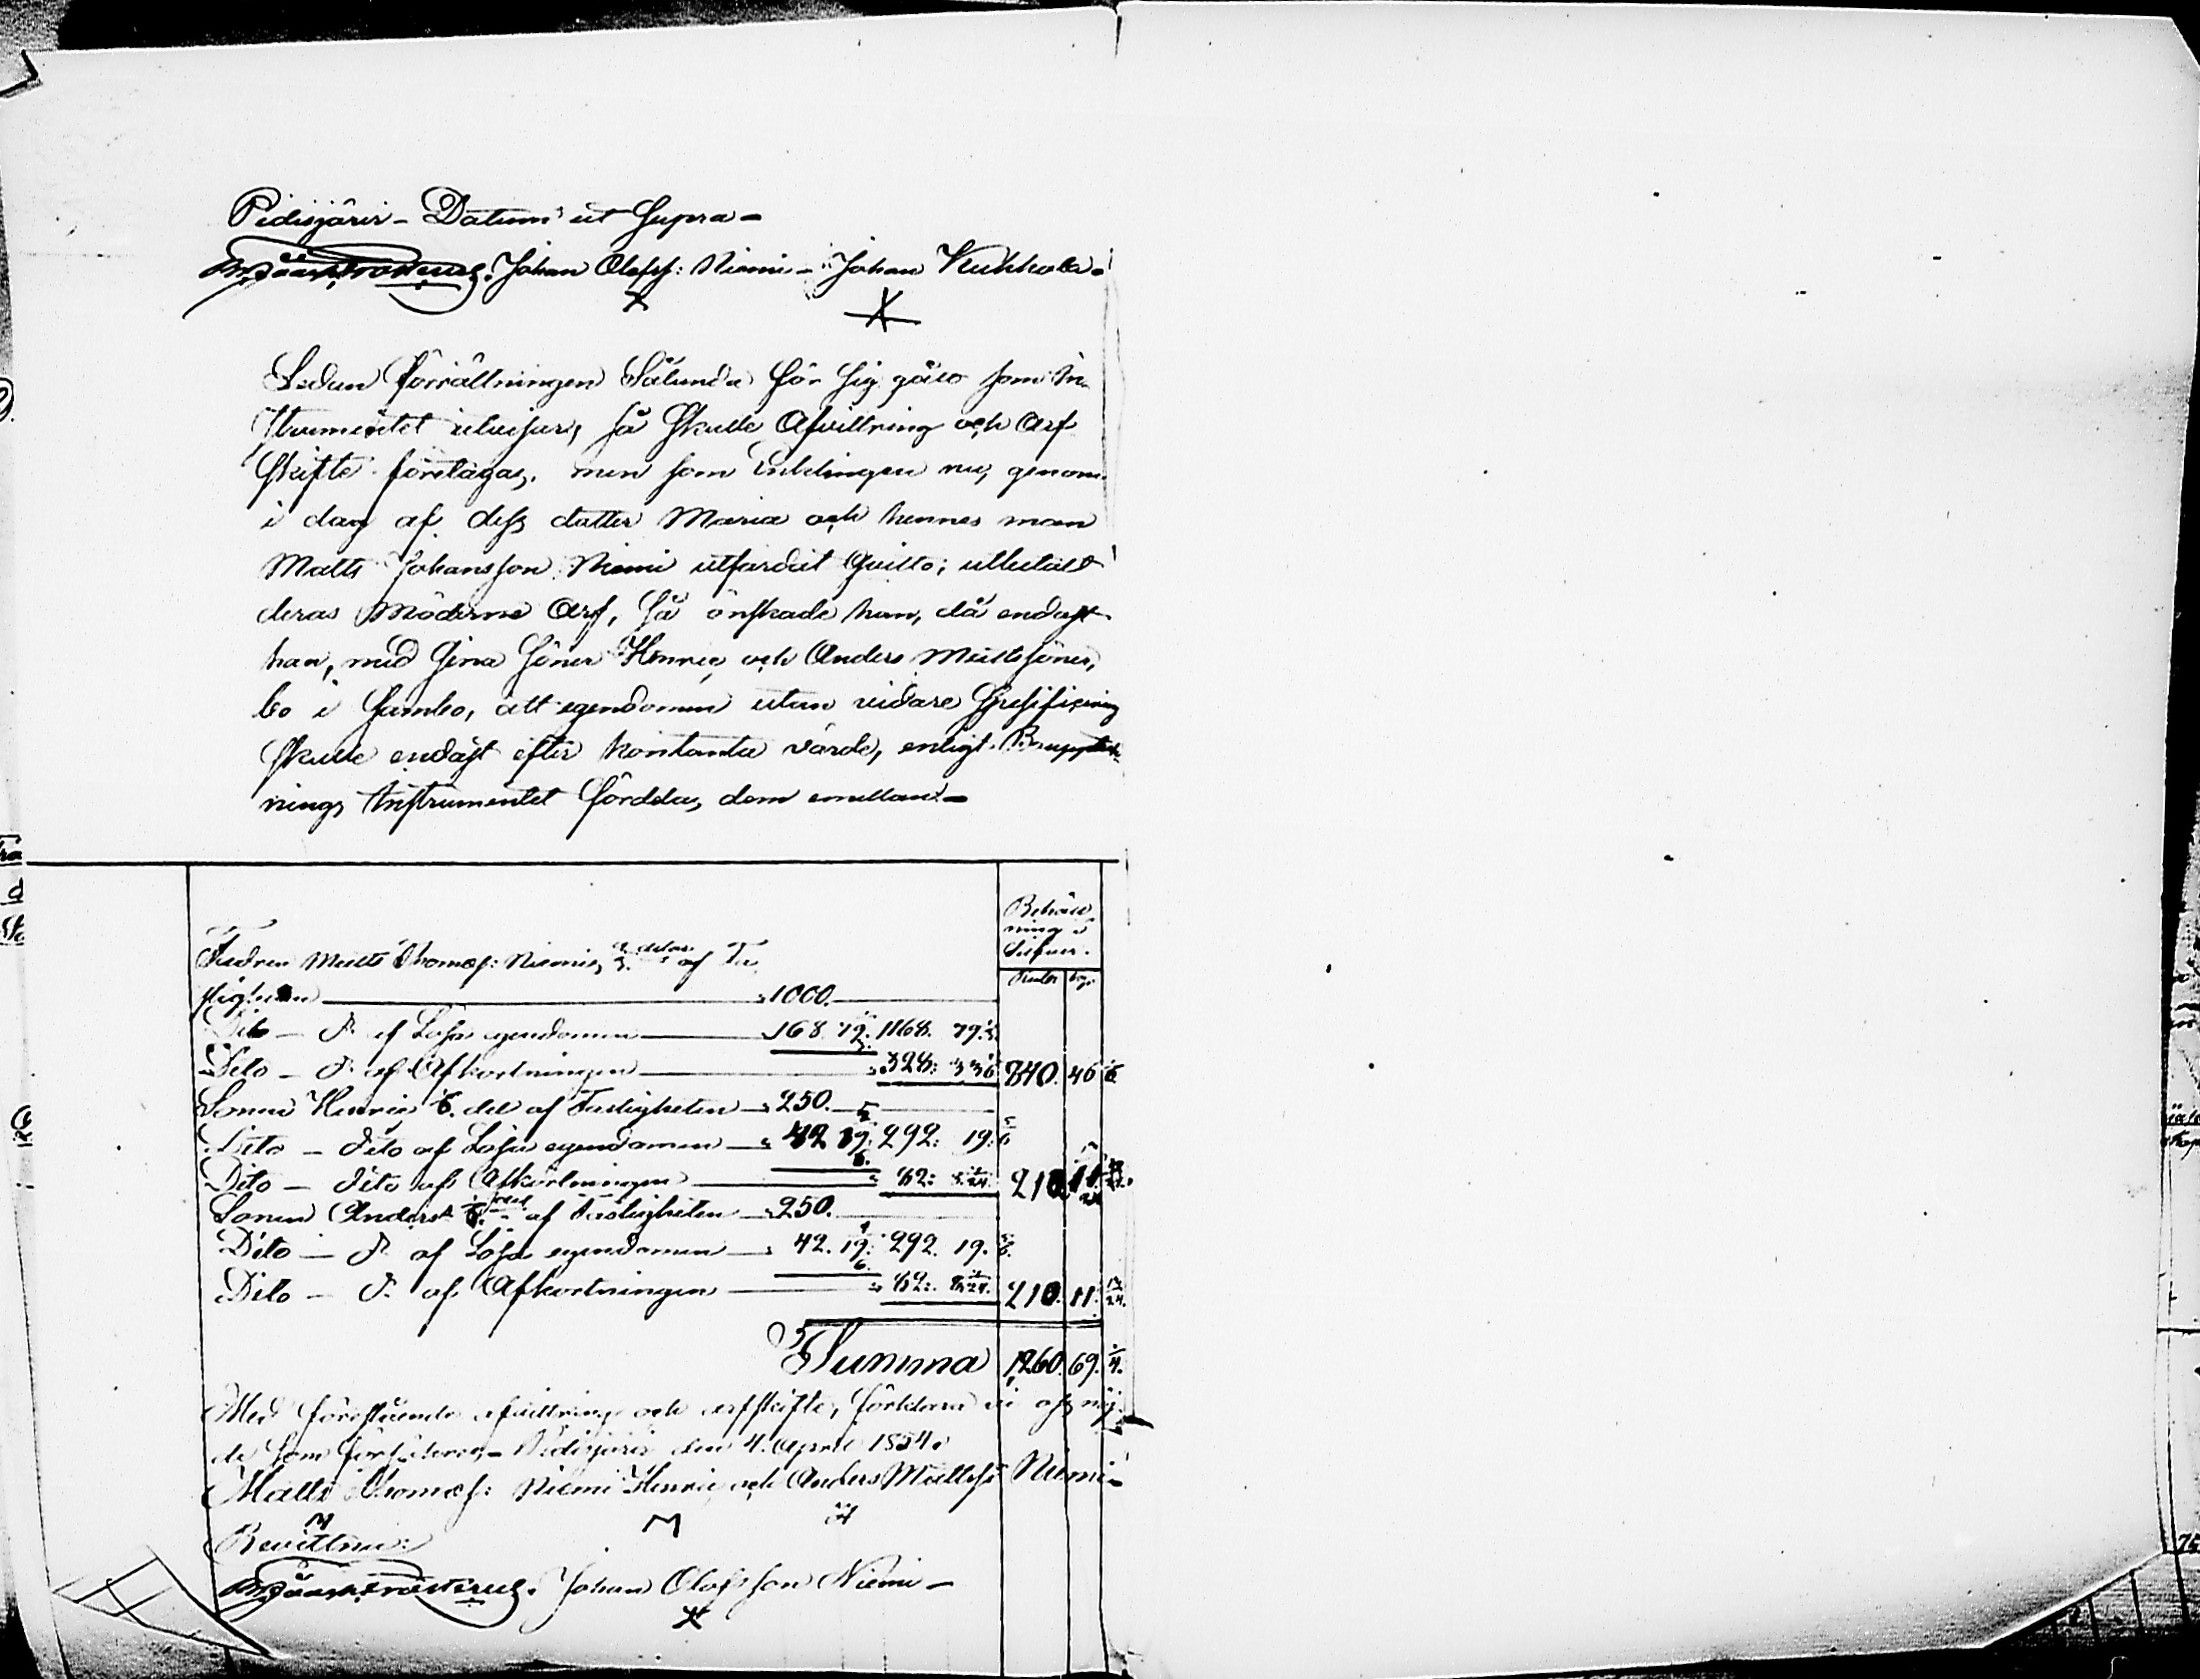 Pidisjärvi - Datum ut Supra -
Johan Olofss: Niemi - Johan Kukkola -
Sedan förrättningen Sålunda för sig gått som In-
strumentet utvisar, så skulle Afvittring och Arf
skifte företagas, men som Enklingen nu, genom
i dag af dess dotter Maria och hennes man
Matts Johansson Niemi utfärdat Quitto, utbetalt
deras Möderne Arf, så önskade han, då endast
han, med sina söner Henric och Anders Mattssöner,
bo i sambo, att egendomen utan vidare Spesificering
skulle endast efter kontanta värde, enligt Bouppteck-
nings Instrumentet fördelas, dem emellan -
Behåll-
ning i
Silfver.
Rubler kop.
Fadren Matts Thomæs: Niemi, 2/3 delar af Fa
stigheten 1000.
Dito - d:o af Lösa egendomen 168 19. 1168. 19.
Dito - d:o af Afkortningen 328: 33 840. 46
Sonen Henric 1/6 del af Fastigheten 250.
Dito - dito af Lösa egendomen 42 19. 292: 19. 5/6
Dito - dito af Afkortningen 82: 8 210 11
Sonen Anders 1/6 del af Fastigheten 250.
Dito - d:o af Lösa egendomen 42. 19. 292. 19. 5/6
Dito - d:o af Afkortningen 82: 8 210. 11.
Summa 1260. 69. 1/4.
Med föreståënde afvittring och arfskifte, förklara vi oss nöj-
de som försäkras, - Pidisjärvi den 4. April 1854.
Matts Thomæs: Niemi Henric och Anders Mattss: Niemi -
Bevittna:
Johan Olofsson Niemi -